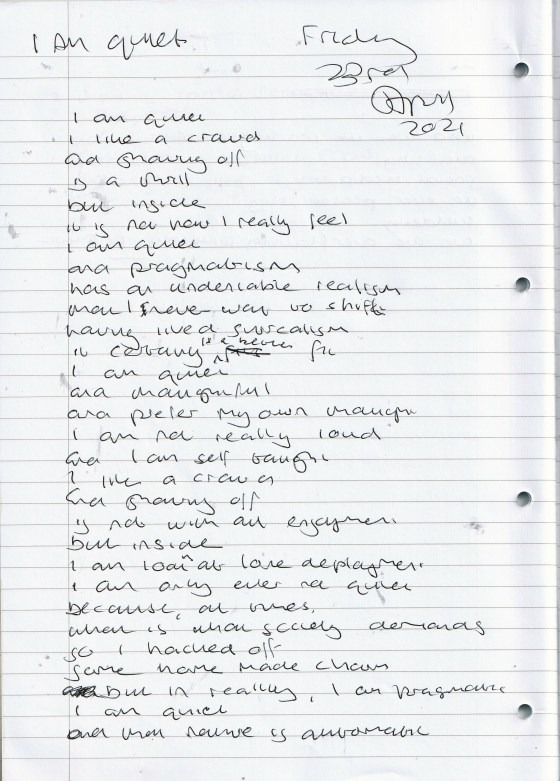 I am quiet
Friday
23rd
April
2021
I am quiet
I like a crowd
and showing off
is a thrill
but inside
it is not how I really feel
I am quiet
and pragmatism
has an undeniable realism
that I never want to shift
having lived surrealism
it certainly is a better fit
I am quiet
and thoughtful
and prefer my own thought
I am not really loud
and I am self taught
I like a crowd
and showing off
is not without enjoyment
but inside
I am at love deployment
I am only ever not quiet
because, at times,
that is what society demands
so I hacked off
some home made
but in reality, I am pragmatic
I am quiet
and that nature is automatic